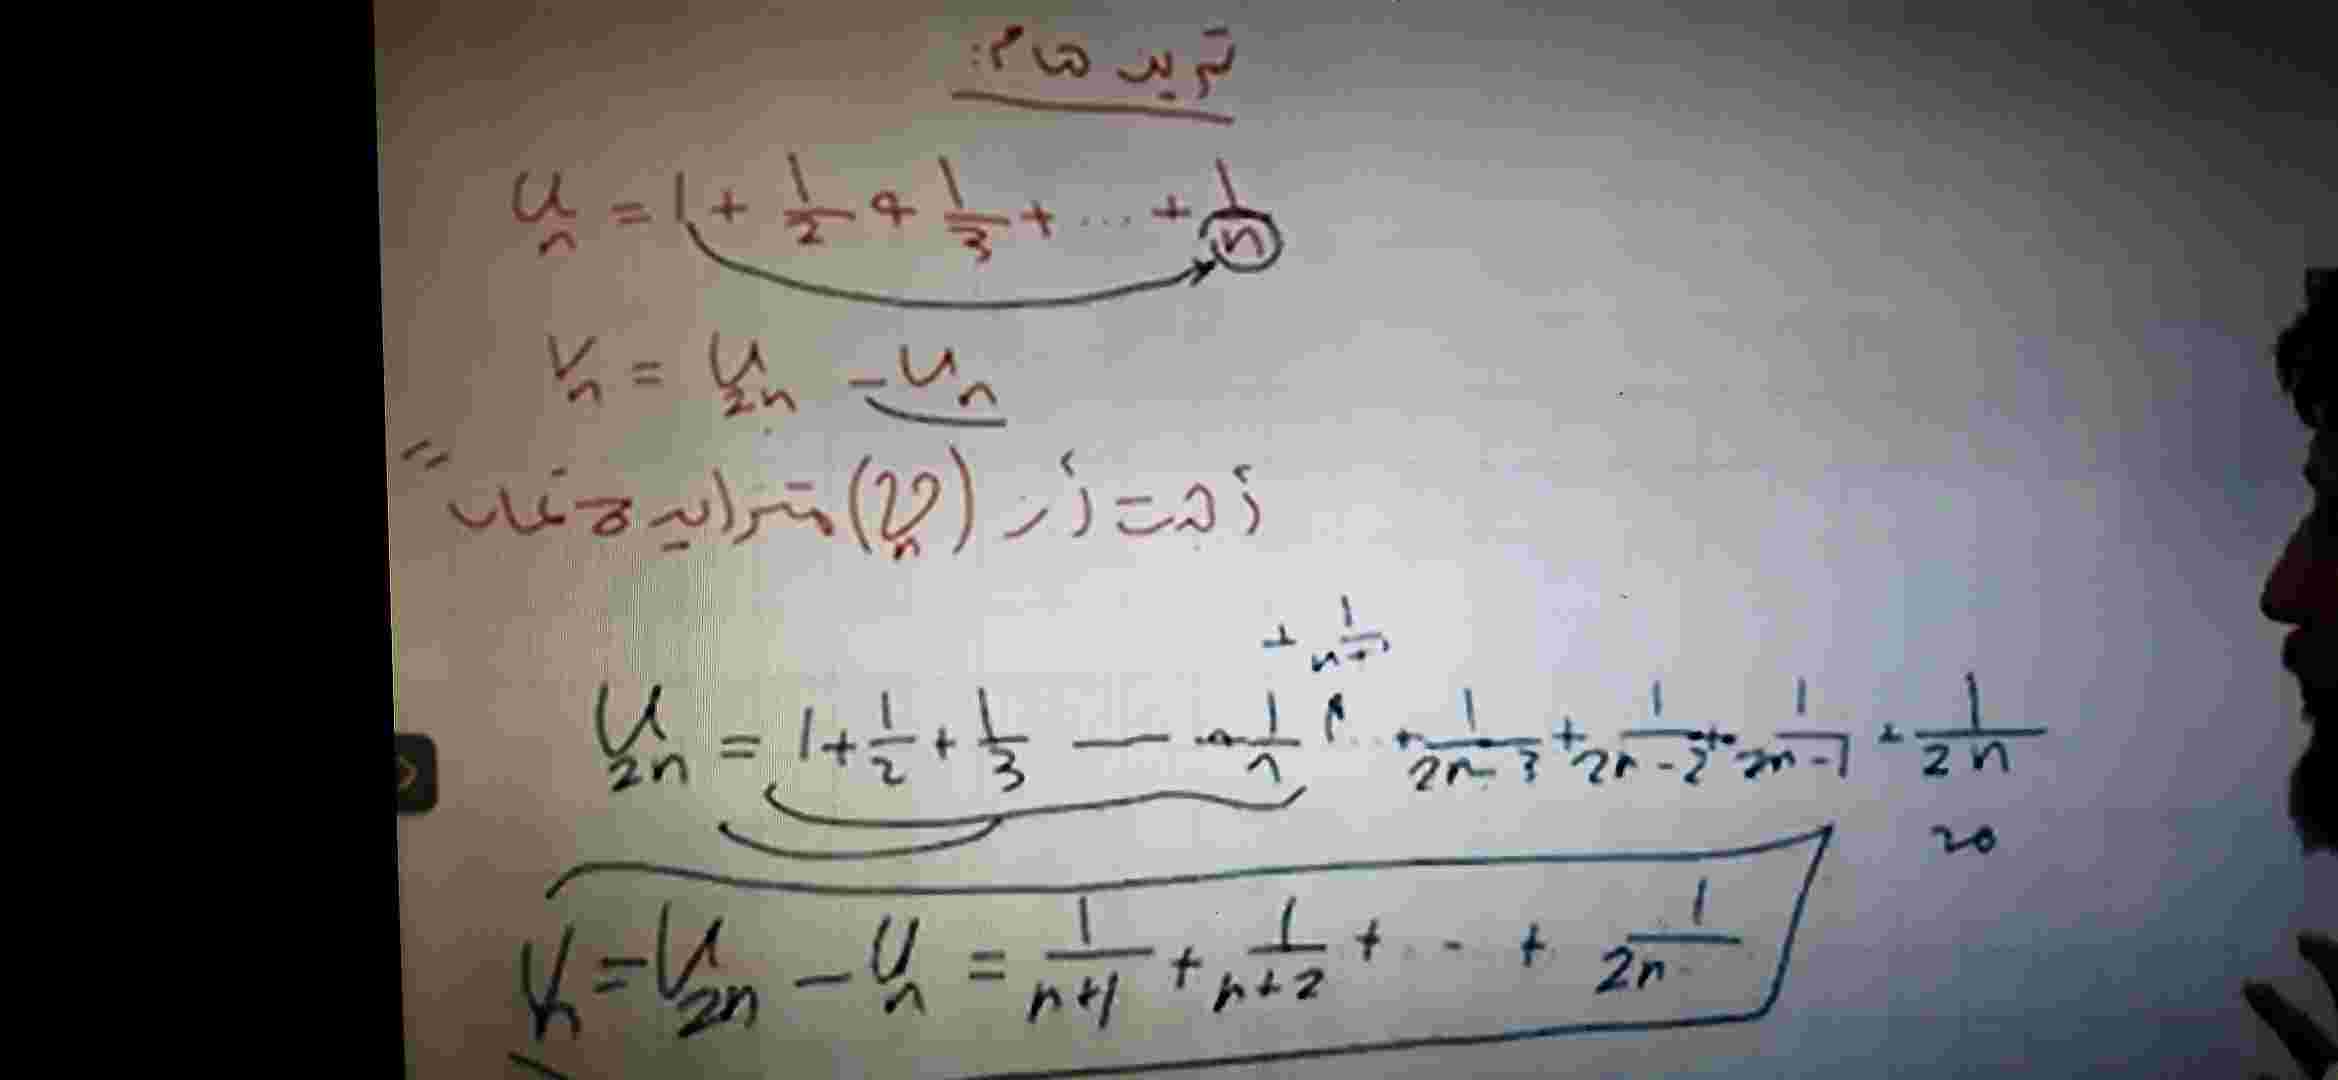 تمرين هام:
U_n = 1 + 1/2 + 1/3 + ... + 1/n
V_n = U_2n - U_n
أدرس (V_n) متزايدة
+ 1/(n+1)
U_2n = 1 + 1/2 + 1/3 — + 1/n ... + 1/(2n-3) + 1/(2n-2) + 1/(2n-1) + 1/2n
20
V_n = U_2n - U_n = 1/(n+1) + 1/(n+2) + ... + 1/2n